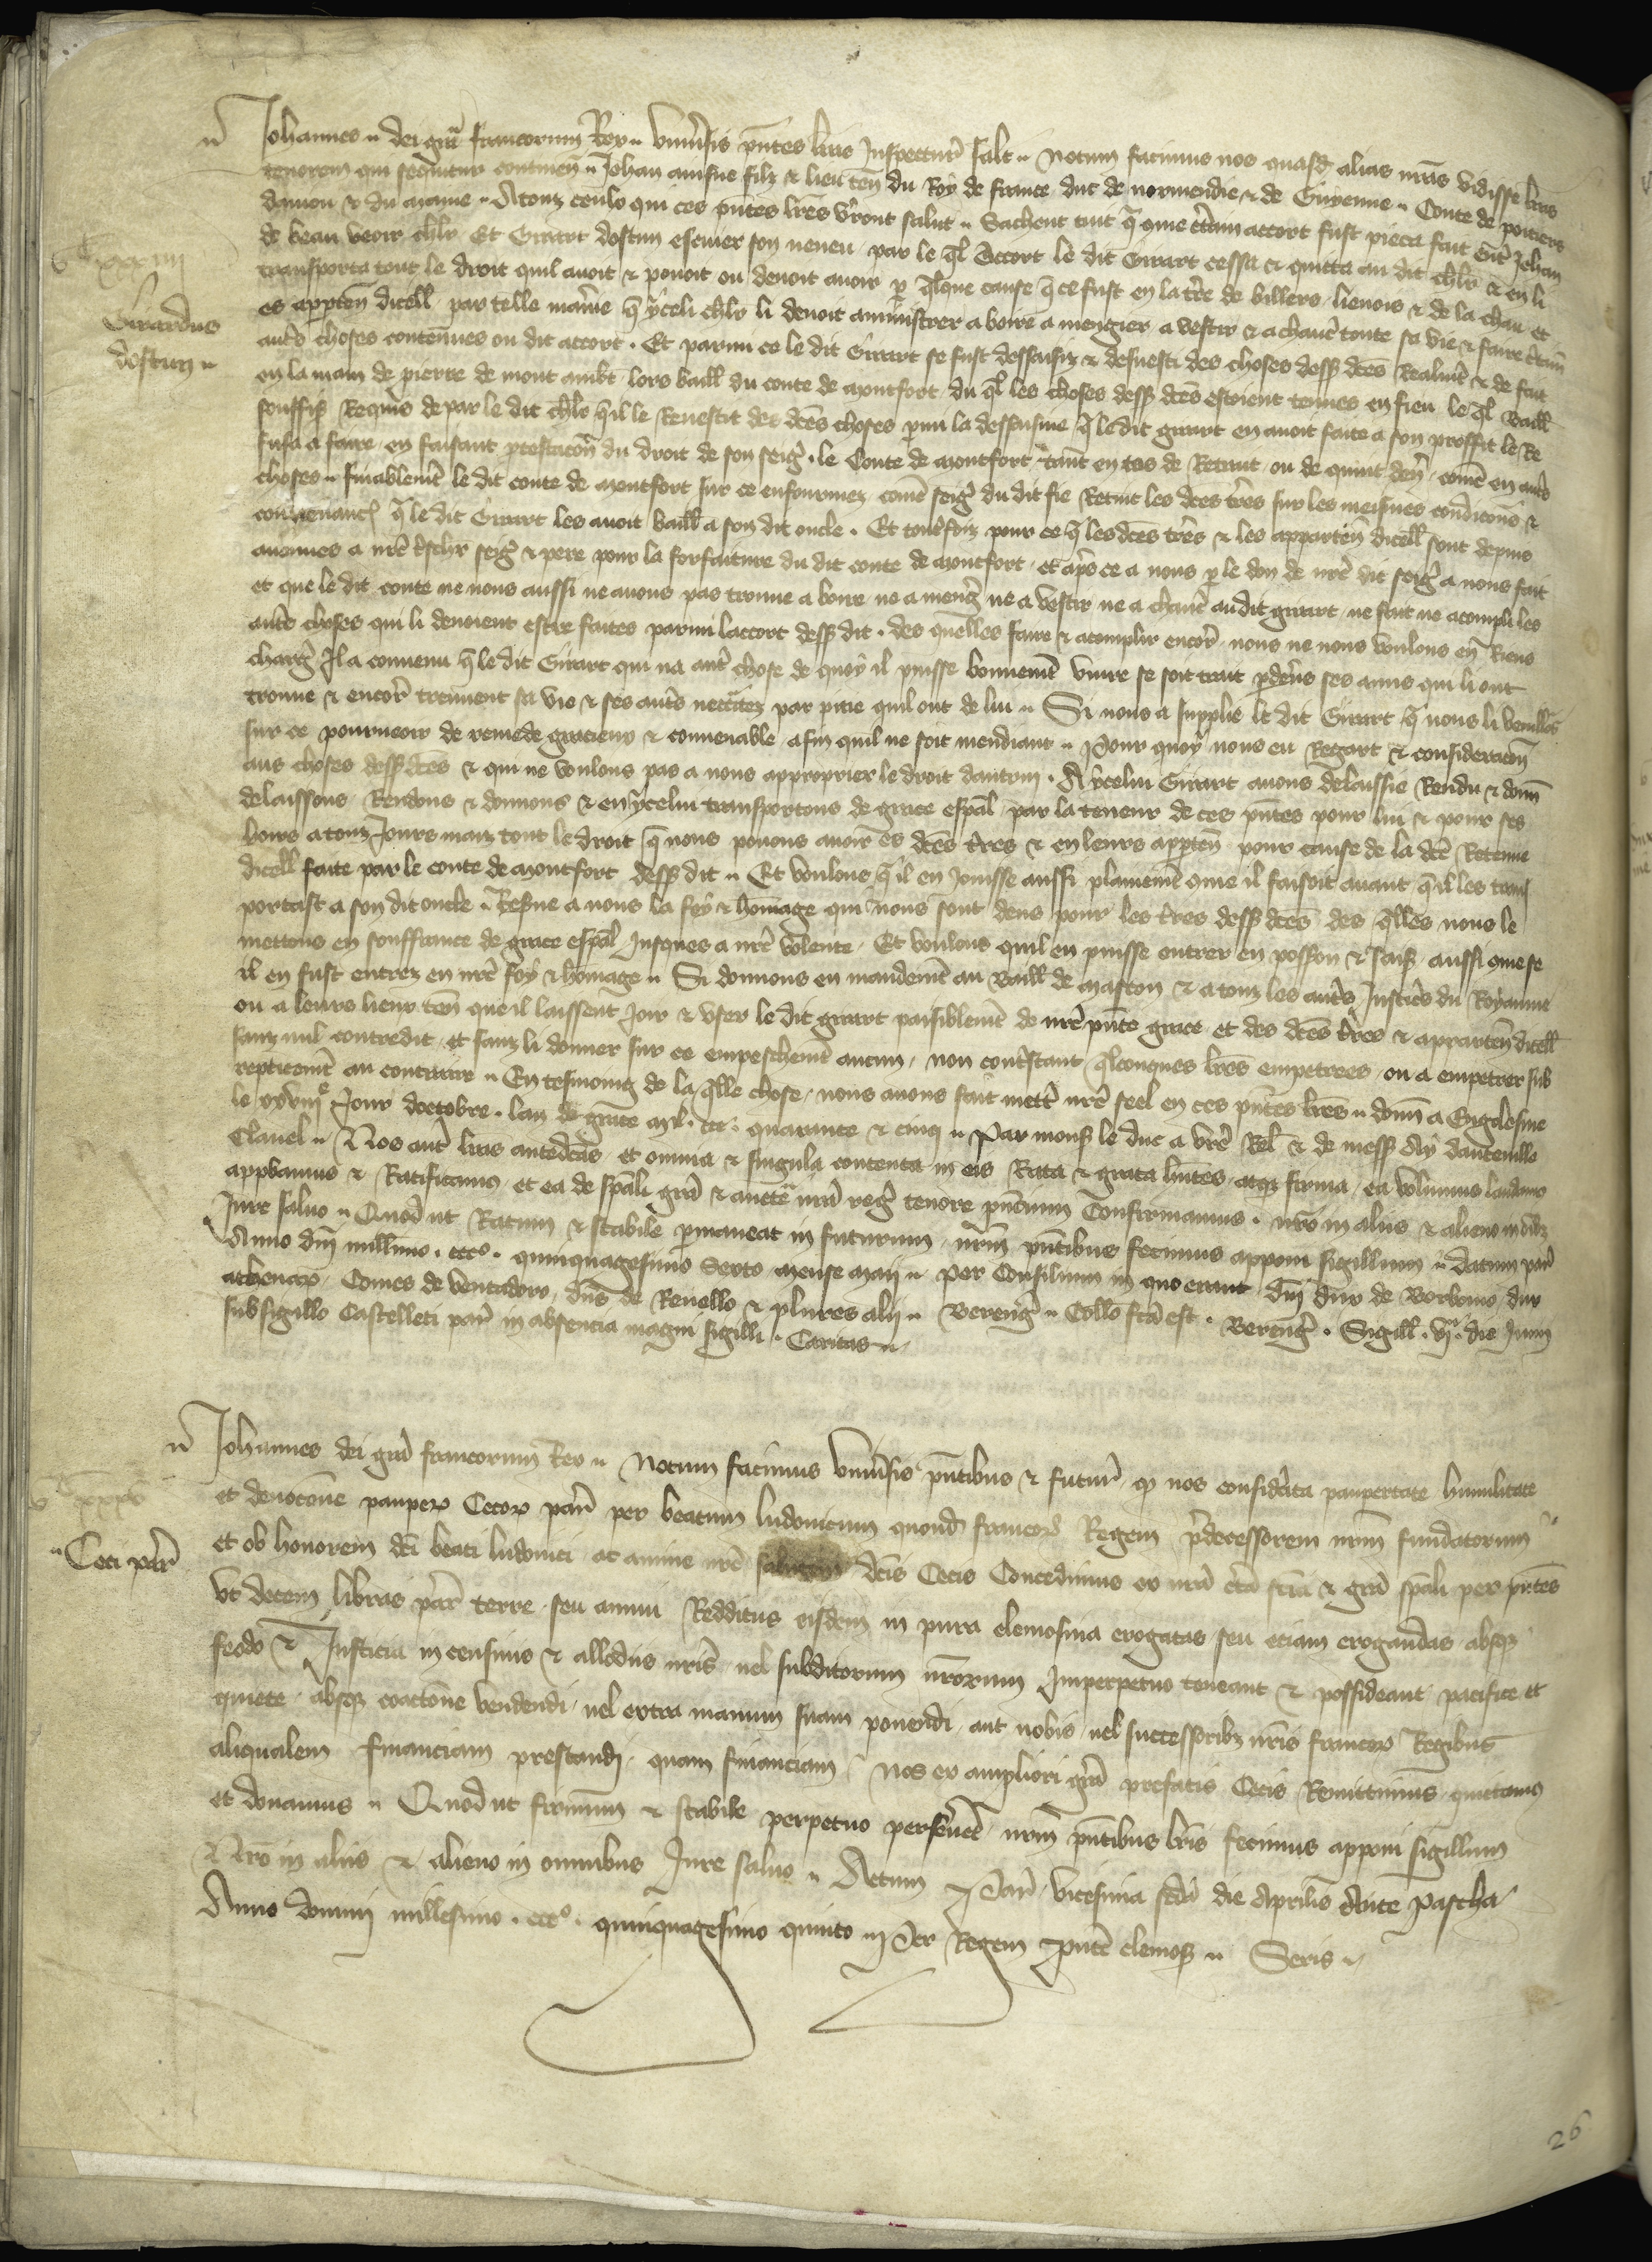 Johannes dei gra francorum Rex vniusis pntes lras Inspectur salt Notum facimus nos quasd alias nras vidisse lras
tenorem qui sequitur continen Johan ainsne filz & lieuten du Roy de france duc de normendie & de Guyenne Conte de poitiers
danjou & du maine A touz ceuls qui ces pntes lres vront salut Sachent tuit q come ctain accort fust pieca fait ent Jehan
de beau veoir chlr Et Girart dostun escuier son neveu par le ql Accort le dit Girart cessa et quitta au dit chlr & en li
transporta tout le droit quil avoit & povoit ou devoit avoir p qlque cause q ce fust en la tre de villers lienois & de la chau et
es apptén dicell par telle manie q yceli chlr li devoit aministrer a boire a mengier a vestir & a chaucr toute sa vie & faire ctain
autrs choses contenues ou dit accort . Et parmi ce le dit Girart se fust dessaisiz & desvesti des choses dess dces Realmt & de fait
en la main de pierre de mont aubt lors baill du conte de montfort du ql les choses dess dces estoient tenues en fieu le ql Baill
souffis Requis de par le dit chlr qil le Revestit des dces choses pmi la dessaisine q le dit girart en avoit faite a son proffit le Re
fusa a faire en faisant ptestacon du droit de son seigr . le Conte de montfort tant en cas de Retrait ou de quint den come en autrs
choses finablemt le dit conte de montfort sur ce enfourmez come seigr du dit fie Retint les dces tres sur les meismes condicons &
convenanc q le dit Girart les avoit baill a son dit oncle . Et toutefoiz pour ce q les dces tres & les apparten dicell sont depuis
avenues a nre tschr seigr & pere pour la forfaiture du dit conte de montfort et aps ce a nous p le don de nre dit seigr a nous fait
et que le dit conte ne nous aussi ne avons pas trouve a boire ne a mengr ne a vestir ne a chaucr au dit girart ne fait ne acompli les
autrs choses qui li devoient estre faites parmi laccort dess dit . des quelles faire & acomplir encor nous ne nous voulons en Riens
chargr Il a convenu q le dit Girart qui na autr chose de quoy il puisse bonnemt vivre se soit trait pdevs ses amis qui li ont
trouve & encor treuvent sa vie & ses autrs neccitez par pitie quil ont de lui Si nous a supplie le dit Girart q nous li veuills
sur ce pourveoir de remede gracieux & convenable afin quil ne soit mendiant Pour quoy nous eu Regart & consideracon
aus choses dess dces & qui ne voulons pas a nous approprier le droit dautruy . A ycelui Girart avons delaissie Rendu & donn
delaissons Rendons & donnons & en ycelui transportons de grace espal par la teneur de ces pntes pour lui & pour ses
hoirs a touz Jours maiz tout le droit q nous povons avoir es dces tres & en leurs apprten pour cause de la dce Retenue
dicell faite par le conte de montfort dess dit Et voulons q il en Jouisse aussi plainemt come il faisoit avant qil les trans
portast a son dit oncle Reserve a nous la foy & homage qui nous sont deus pour les tres dess dces des qlles nous le
mettons en souffrance de grace espal Jusques a nre volente Et voulons quil en puisse entrer en possion & sais aussi come se
il en fust entrez en nre foy & homage Si donnons en mandemt au Baill de mascon & a touz les autrs Justicrs du Royaume
ou a leurs lieux ten que il laissent Joir & user le dit girart paisiblemt de nre pnte grace et des dces tres & apparten dicell
sanz nul contredit et sanz li donner sur ce empeschemt aucun non contstant qlconques lres empetrees ou a empetrer sub
repticemt au contraire En tesmoing de la qlle chose nous avons fait mettr nre seel en ces pntes lres donn a Engolesme
le xxviiie Jour doctobre . lan de grace mil . ccc . quarante & cinq Par mons le duc a vre Rel & de mess Guy dautenille
Clavel Nos aut lras antedcas et omnia & singula contenta in eis Rata & grata hntes atq firma ea volumus laudamus
appbamus & Ratificamus et ea de spali gra & auctte nra reg tenore pncium Confirmamus . nro in aliis & alieno in oibz
Jure salvo Quod ut Ratum & stabile pmaneat in futurum nrm pntibus fecimus apponi sigillum datum pari
Anno dni millimo . ccco . quinquagesimo sexto mense maij Per Consilium in quo erant dni dux de Borbonio dux
athenar Comes de ventadoro dns de Revello & plures alij Bereng Collo fca est . Bereng . Sigill . vja . die Junij
sub sigillo Castelleti par in absencia magni sigilli . Caritas
Girardus
dostun
Johannes dei gra francorum Rex Notum facimus vniusis pntibus & futur q nos considata paupertate humilitate
et devocone paupers Cecor paris per beatum ludovicum quond francor Regem pdecessorem nrm fundatorum
Ceci par
et ob honorem dci beati ludovici ac anime nre salutem dcis Cecis Concedimus ex nra cta scia & gra spali per pntes
vt decem libras par terre seu annui Redditus eisdem in pura elemosina erogatas seu eciam erogandas absq
feodo & Justicia in censivis & allodiis nris vel subditorum nrorum Imperpetuo teneant & possideant pacifice et
quiete absq coactone vendendi vel extra manum suam ponendi aut nobis vel successoribz nris francor Regibus
aliqualem financiam prestandi quam financiam nos ex ampliori gra prefatis Cecis Remittimus quitamus
et donamus Quod ut firmum & stabile perpetuo persevet nrm pntibus lris fecimus apponi sigillum
Nro in aliis & alieno in omnibus Jure salvo Actum Paris vicesima scda die Aprilis Ante Pascha
Anno domini millesimo . ccco . quinquagesimo quinto Per Regem pnte elemos Seris
26